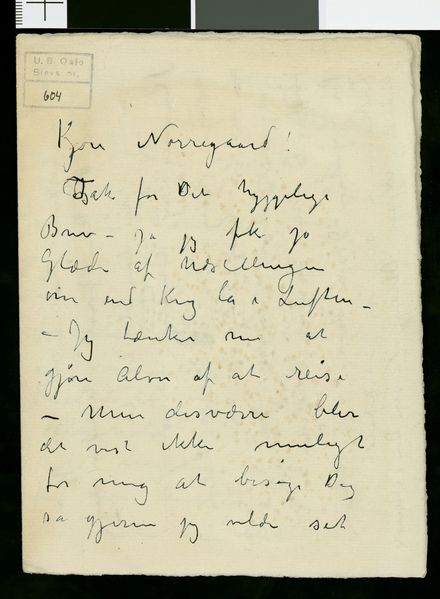 U. B. Oslo
Brevs. nr.
604
Kjære Norregaard!
Tak for Det hyggelige
Brev – Ja jeg fik jo
Glæde af Udstillingen
om end Krig la i Luften –
– Jeg tænker nu at
gjøre Alvor af at reise
– Men desværre blir
det vist ikke muligt
for mig at besøge Dig
så gjerne jeg vilde set